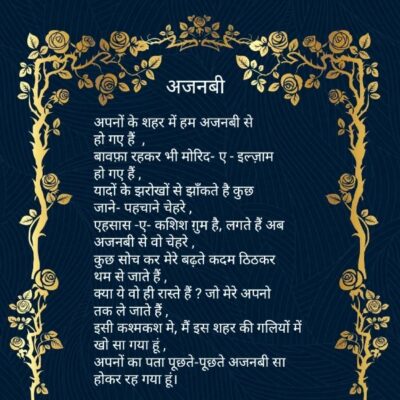 अजनबी
अपनों के शहर में हम अजनबी से
हो गए हैं ,
बावफ़ा रहकर भी मोरिद- ए - इल्ज़ाम
हो गए हैं ,
यादों के झरोखों से झाँकते है कुछ
जाने- पहचाने चेहरे ,
एहसास -ए- कशिश ग़ुम है, लगते हैं अब
अजनबी से वो चेहरे ,
कुछ सोच कर मेरे बढ़ते कदम ठिठकर
थम से जाते हैं ,
क्या ये वो ही रास्ते हैं ? जो मेरे अपनो
तक ले जाते हैं ,
इसी कश्मकश मे, मैं इस शहर की गलियों में
खो सा गया हूं ,
अपनों का पता पूछते-पूछते अजनबी सा
होकर रह गया हूं।